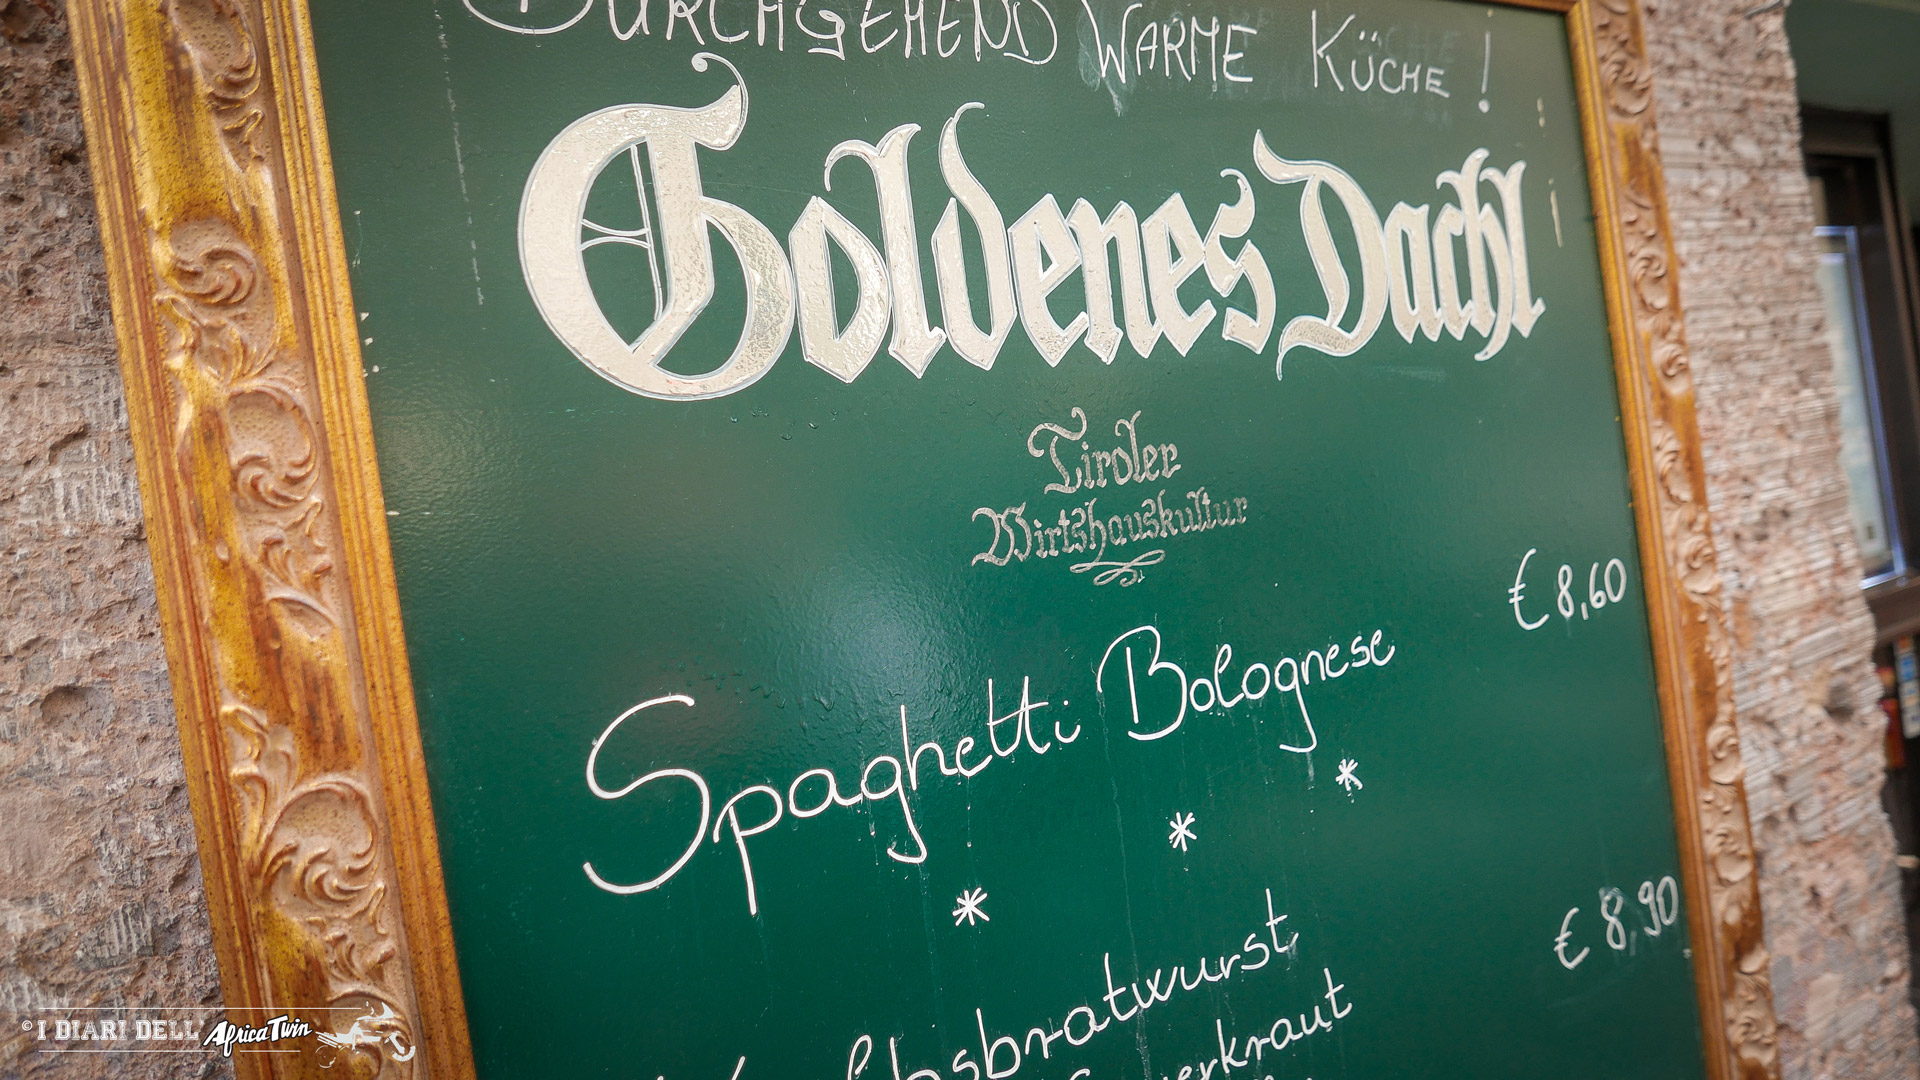 DURCHGEHEND WARME KÜCHE !
Goldenes Dachl
Tiroler
Wirtshauskultur
Spaghetti Bolognese € 8,60
* * *
€ 8,90
© I DIARI DELL' Africa Twin